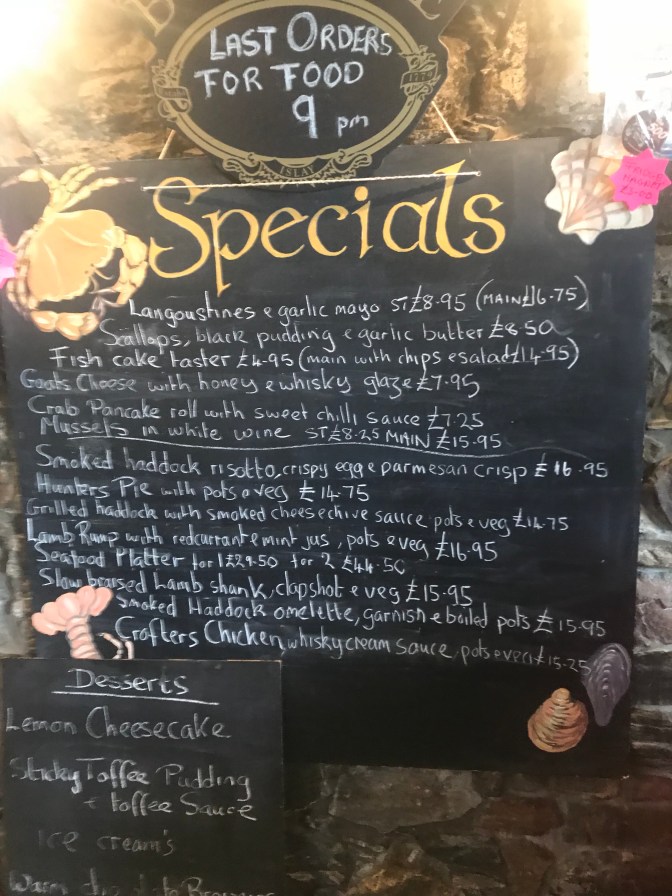 LAST ORDERS
FOR FOOD
9 pm
1779
ISLAY
Specials
Langoustines e garlic mayo ST £8.95 (MAIN £16.75)
Scallops, black pudding e garlic butter £8.50
Fish cake taster £4.95 (main with chips e salad £14.95)
Goats Cheese with honey e whisky glaze £7.95
Crab Pancake roll with sweet chilli sauce £7.25
Mussels in white wine ST £8.25 MAIN £15.95
Smoked haddock risotto, crispy egg e parmesan crisp £16.95
Hunters Pie with pots e veg £14.75
Grilled haddock with smoked cheese chive sauce pots e veg £14.75
Lamb Rump with redcurrant e mint jus, pots e veg £16.95
Seafood Platter for 1 £29.50 for 2 £44.50
Slow braised Lamb shank, clapshot e veg £15.95
Smoked Haddock omelette, garnish e boiled pots £15.95
Crofters Chicken, whisky cream sauce, pots e veg £15.25
Desserts
Lemon Cheesecake
Sticky Toffee Pudding
+ toffee Sauce
Ice cream's
Warm